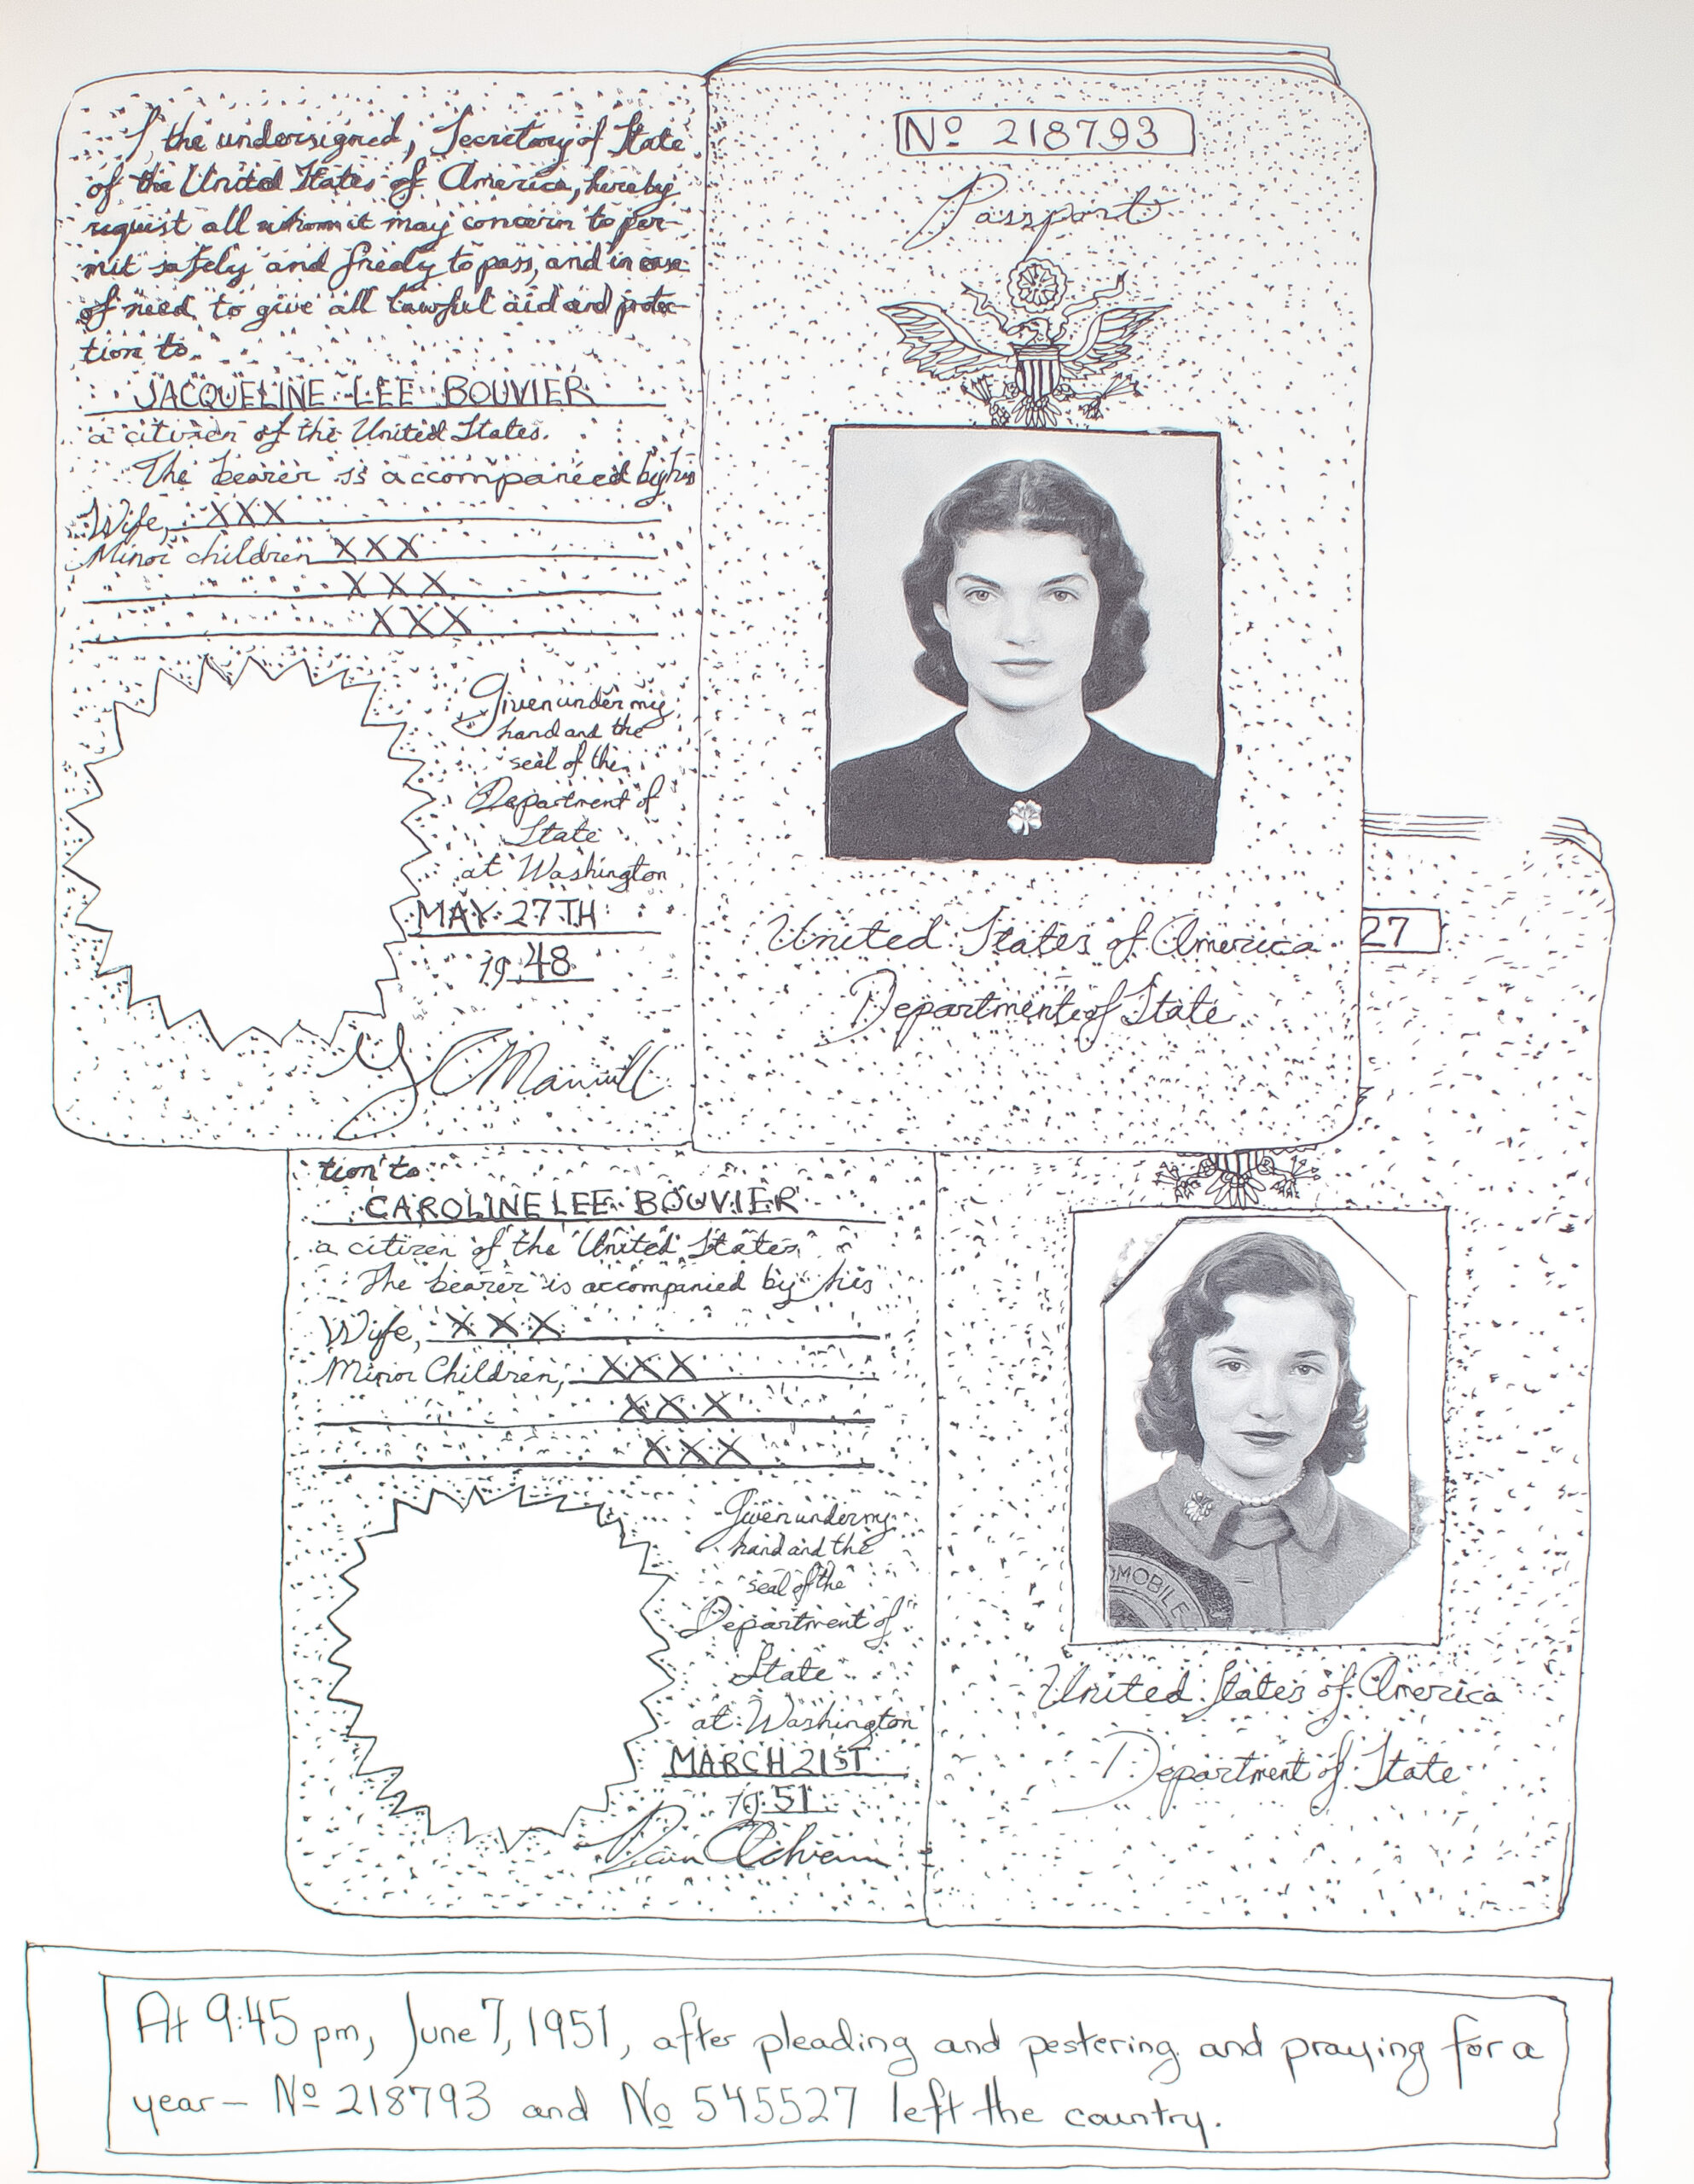 I, the undersigned, Secretary of State
of the United States of America, hereby
request all whom it may concern to per-
mit safely and freely to pass, and in case
of need to give all lawful aid and protec-
tion to
JACQUELINE LEE BOUVIER
a citizen of the United States.
The bearer is accompanied by his
Wife, XXX
Minor children XXX
XXX
XXX
Given under my
hand and the
seal of the
Department of
State
at Washington
MAY 27TH
1948
Nº 218793
Passport
United States of America
Department of State
27
tion to
CAROLINE LEE BOUVIER
a citizen of the United States
The bearer is accompanied by his
Wife, XXX
Minor Children, XXX
XXX
XXX
Given under my
hand and the
seal of the
Department of
State
at Washington
MARCH 21ST
1951
OMOBILE
United States of America
Department of State
At 9:45 pm, June 7, 1951, after pleading and pestering and praying for a
year — Nº 218793 and No 545527 left the country.